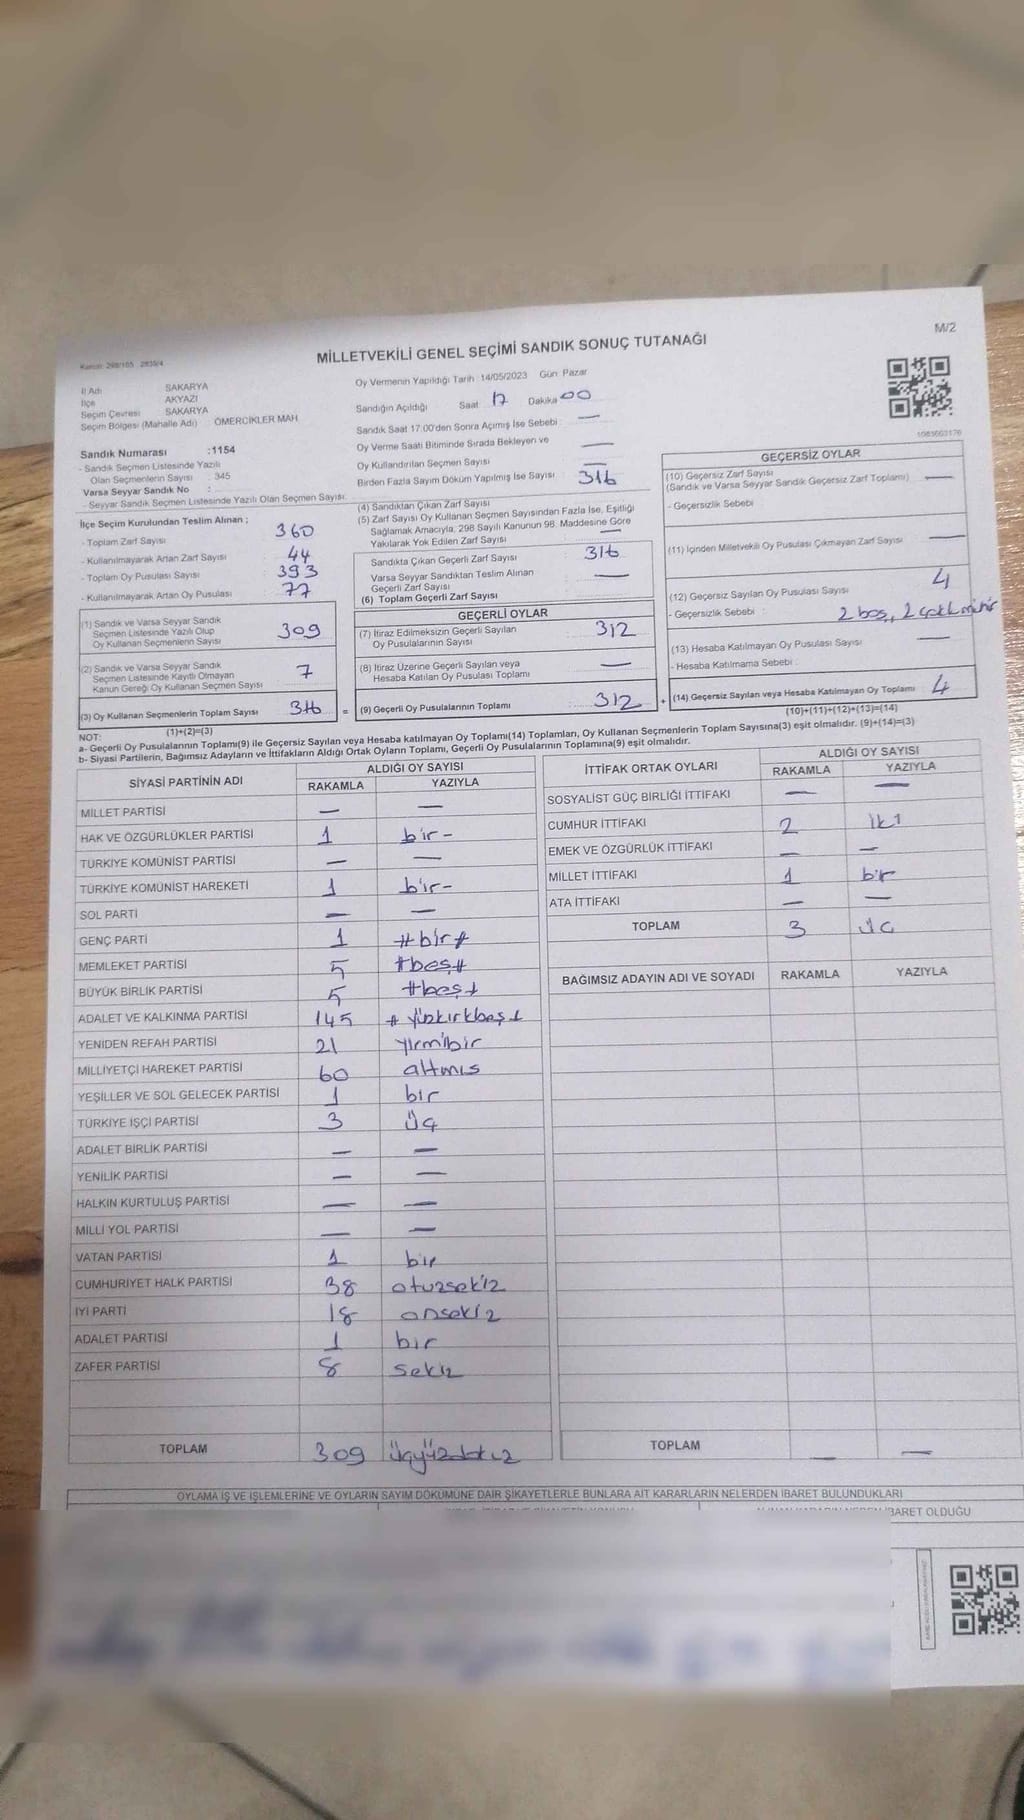 M/2
Kanun: 298/105 2839/4
MİLLETVEKİLİ GENEL SEÇİMİ SANDIK SONUÇ TUTANAĞI
İl Adı SAKARYA
İlçe AKYAZI
Seçim Çevresi SAKARYA
Seçim Bölgesi (Mahalle Adı) ÖMERCİKLER MAH
Sandık Numarası :1154
- Sandık Seçmen Listesinde Yazılı
Olan Seçmenlerin Sayısı : 345
Varsa Seyyar Sandık No :
- Seyyar Sandık Seçmen Listesinde Yazılı Olan Seçmen Sayısı:
Oy Vermenin Yapıldığı Tarih :14/05/2023 Gün: Pazar
Sandığın Açıldığı Saat 17 Dakika 00
Sandık Saat 17:00'den Sonra Açımış İse Sebebi : —
Oy Verme Saati Bitiminde Sırada Bekleyen ve
Oy Kullandırılan Seçmen Sayısı —
Birden Fazla Sayım Döküm Yapılmış İse Sayısı —
1081603176
İlçe Seçim Kurulundan Teslim Alınan ;
- Toplam Zarf Sayısı : 360
- Kullanılmayarak Artan Zarf Sayısı : 44
- Toplam Oy Pusulası Sayısı : 393
- Kullanılmayarak Artan Oy Pusulası : 77
(1) Sandık ve Varsa Seyyar Sandık
Seçmen Listesinde Yazılı Olup
Oy Kullanan Seçmenlerin Sayısı : 309
(2) Sandık ve Varsa Seyyar Sandık
Seçmen Listesinde Kayıtlı Olmayan
Kanun Gereği Oy Kullanan Seçmen Sayısı : 7
(3) Oy Kullanan Seçmenlerin Toplam Sayısı 316 =
(1)+(2)=(3)
(4) Sandıktan Çıkan Zarf Sayısı 316
(5) Zarf Sayısı Oy Kullanan Seçmen Sayısından Fazla İse, Eşitliği
Sağlamak Amacıyla, 298 Sayılı Kanunun 98. Maddesine Göre
Yakılarak Yok Edilen Zarf Sayısı —
Sandıkta Çıkan Geçerli Zarf Sayısı 316
Varsa Seyyar Sandıktan Teslim Alınan
Geçerli Zarf Sayısı —
(6) Toplam Geçerli Zarf Sayısı
GEÇERLİ OYLAR
(7) İtiraz Edilmeksizin Geçerli Sayılan
Oy Pusulalarının Sayısı : 312
(8) İtiraz Üzerine Geçerli Sayılan veya
Hesaba Katılan Oy Pusulası Toplamı : —
(9) Geçerli Oy Pusulalarının Toplamı 312 +
GEÇERSİZ OYLAR
(10) Geçersiz Zarf Sayısı
(Sandık ve Varsa Seyyar Sandık Geçersiz Zarf Toplamı) —
- Geçersizlik Sebebi :
(11) İçinden Milletvekili Oy Pusulası Çıkmayan Zarf Sayısı —
(12) Geçersiz Sayılan Oy Pusulası Sayısı 4
- Geçersizlik Sebebi : 2 boş,, 2 çok
(13) Hesaba Katılmayan Oy Pusulası Sayısı —
- Hesaba Katılmama Sebebi :
(14) Geçersiz Sayılan veya Hesaba Katılmayan Oy Toplamı 4
(10)+(11)+(12)+(13)=(14)
NOT:
a- Geçerli Oy Pusulalarının Toplamı(9) ile Geçersiz Sayılan veya Hesaba katılmayan Oy Toplamı(14) Toplamları, Oy Kullanan Seçmenlerin Toplam Sayısına(3) eşit olmalıdır. (9)+(14)=(3)
b- Siyasi Partilerin, Bağımsız Adayların ve İttifakların Aldığı Ortak Oyların Toplamı, Geçerli Oy Pusulalarının Toplamına(9) eşit olmalıdır.
SİYASİ PARTİNİN ADI ALDIĞI OY SAYISI
RAKAMLA YAZIYLA
MİLLET PARTİSİ — —
HAK VE ÖZGÜRLÜKLER PARTİSİ 1 bir-
TÜRKİYE KOMÜNİST PARTİSİ — —
TÜRKİYE KOMÜNİST HAREKETİ 1 bir-
SOL PARTİ — —
GENÇ PARTİ 1 #bir#
MEMLEKET PARTİSİ 5 #beş#
BÜYÜK BİRLİK PARTİSİ 5 #beş#
ADALET VE KALKINMA PARTİSİ 145 #yüzkırkbeş#
YENİDEN REFAH PARTİSİ 21 yirmibir
MİLLİYETÇİ HAREKET PARTİSİ 60 altmıs
YEŞİLLER VE SOL GELECEK PARTİSİ 1 bir
TÜRKİYE İŞÇİ PARTİSİ 3 üç
ADALET BİRLİK PARTİSİ — —
YENİLİK PARTİSİ — —
HALKIN KURTULUŞ PARTİSİ — —
MİLLİ YOL PARTİSİ — —
VATAN PARTİSİ 1 bir
CUMHURİYET HALK PARTİSİ 38 otuzsekiz
İYİ PARTİ 18 onsekiz
ADALET PARTİSİ 1 bir
ZAFER PARTİSİ 8 sekiz
TOPLAM 309 üçyüzdokuz
İTTİFAK ORTAK OYLARI ALDIĞI OY SAYISI
RAKAMLA YAZIYLA
SOSYALİST GÜÇ BİRLİĞİ İTTİFAKI — —
CUMHUR İTTİFAKI 2 iki
EMEK VE ÖZGÜRLÜK İTTİFAKI — —
MİLLET İTTİFAKI 1 bir
ATA İTTİFAKI — —
TOPLAM 3 üç
BAĞIMSIZ ADAYIN ADI VE SOYADI RAKAMLA YAZIYLA
TOPLAM — —
OYLAMA İŞ VE İŞLEMLERİNE VE OYLARIN SAYIM DÖKÜMÜNE DAİR ŞİKAYETLERLE BUNLARA AİT KARARLARIN NELERDEN İBARET BULUNDUKLARI
BARET OLDUĞU